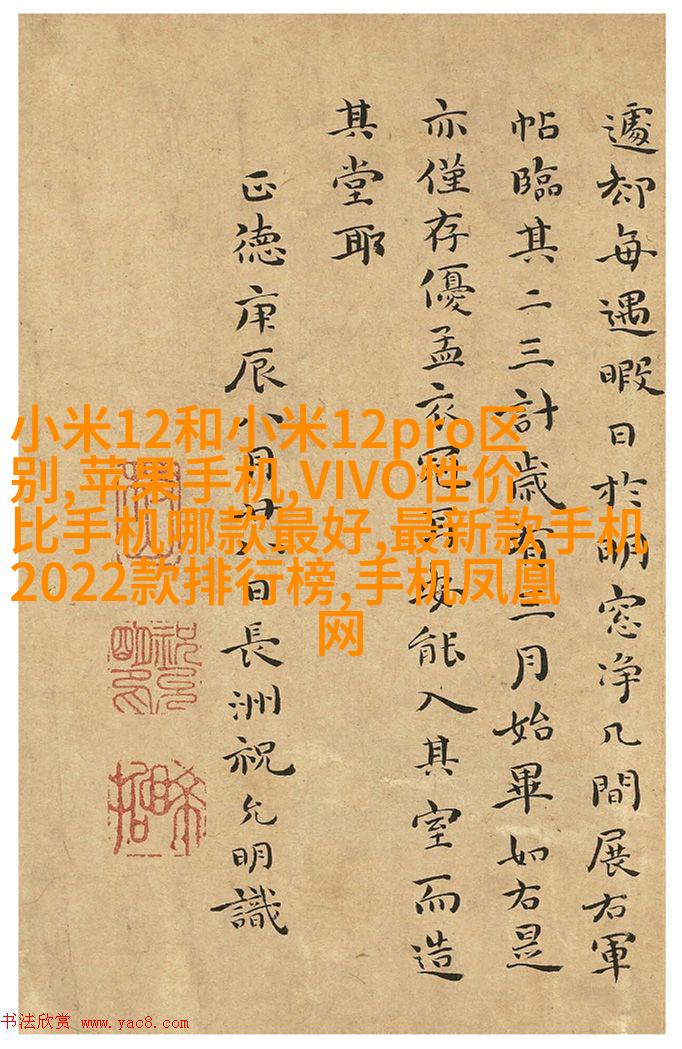 遽却每遇暇日於明窓净几間展右軍
帖臨其二三計歲有三月始畢如右是
亦僅存優孟衣冠耳安能入其室而造
其堂耶
正德庚辰八月廿日長洲祝允明識
小米12和小米12pro区
别,苹果手机,VIVO性价
比手机哪款最好,最新款手机
2022款排行榜,手机凤凰
网
书法欣赏 www.yac8.com